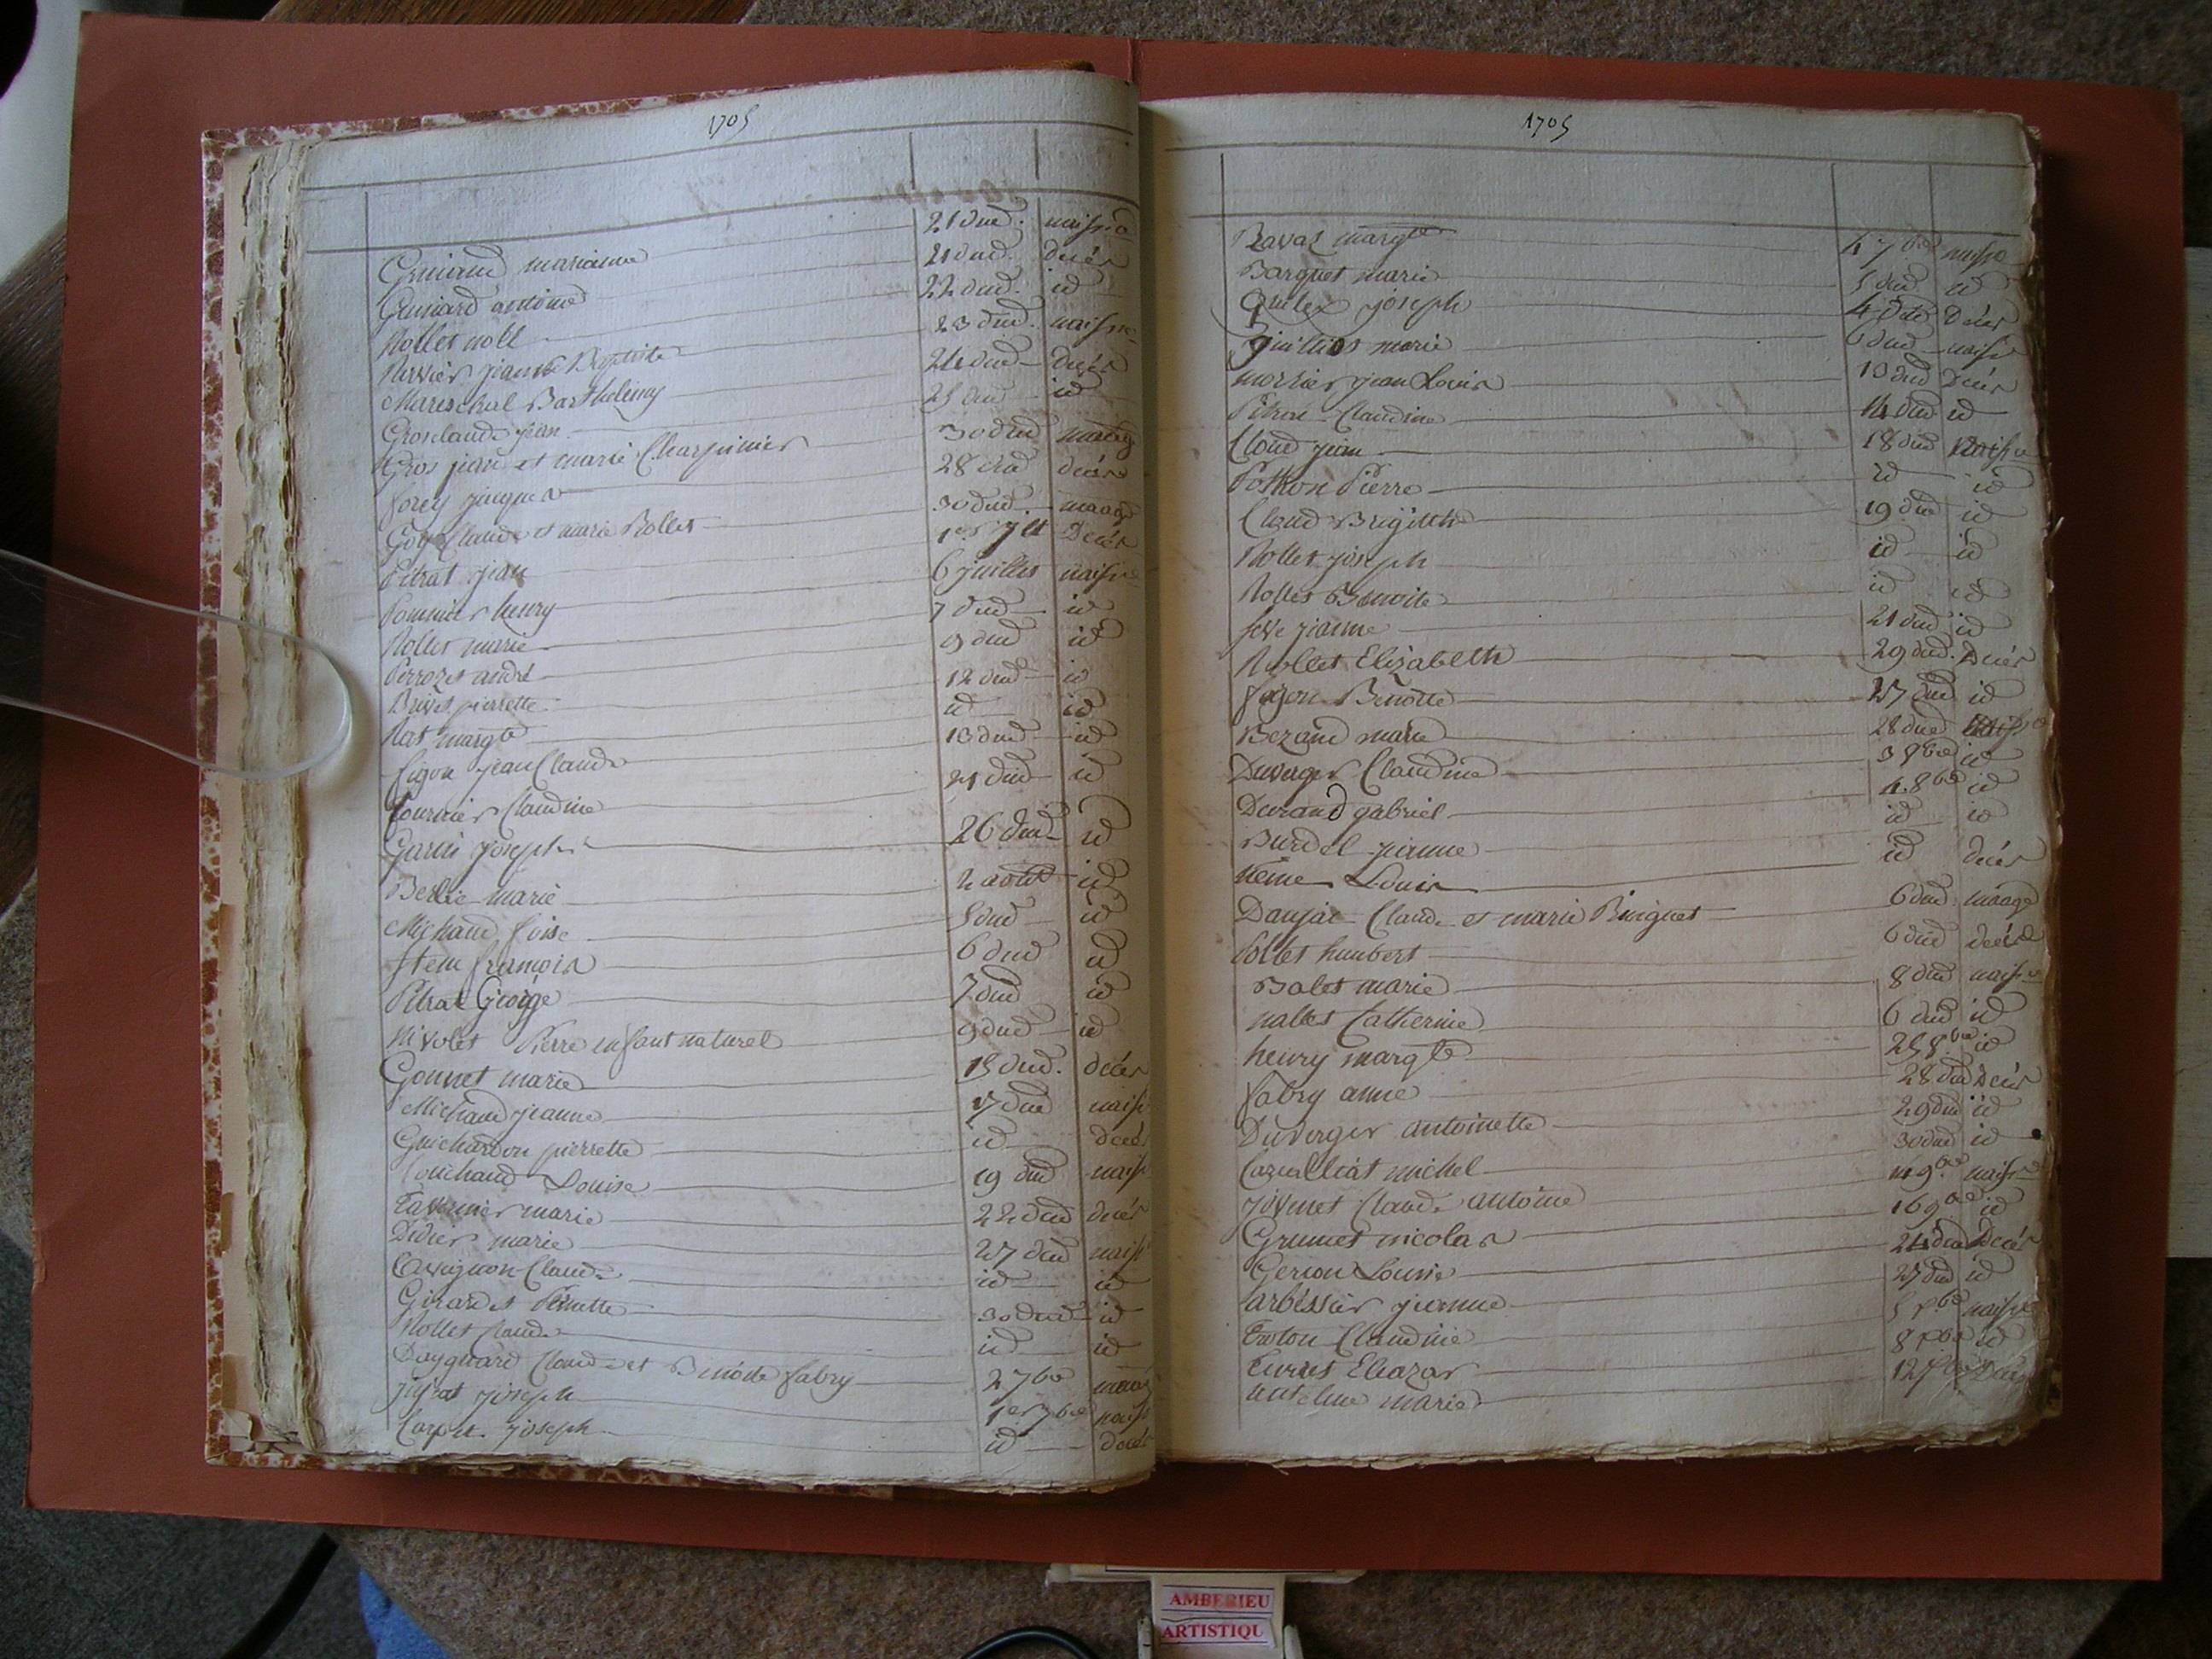 1705
21 dud. naissce
Guinard marianne 21 dud. décès
Guinard antoine 22 dud. id
Rollet noll 23 dud. naissce
jeanne Baptiste 24 dud décès
Mareschal Barthelemy 25 dud id
Groslaude jean 30 dud mariage
Gros jean et marie Charpinier 28 dud décès
forey jacques 30 dud. maage
Goy Claude et marie Rollet 1er jlt Décès
Pitrat jean 6 juillet naissce
Pommier henry 7 dud id
Rollet marie 9 dud id
Perrozet andré 12 dud id
Brivet pierrette id id
Rat margte 13 dud id
figon jean Claude 21 dud id
fournier Claudine
Garin joseph 26 dud id
Bellie marie 2 aout id
Michaud foise 5 dud id
Item francois 6 dud id
Pitrat George 7 dud id
Nivolet Pierre enfant naturel 9 dud id
Gonnet marie 15 dud. décès
Michaud jeanne 17 dud naiss
Guichardon pierrette id décès
Couchaud Louise 19 dud naiss
Tavernier marie 22 dud décès
Didier marie 27 dud naiss
Cavagnon Claude id id
Girardet Pernette 30 dud id
Rollet Claude id id
Dayguard Claude et Benoite fabry 2 7bre maage
Jujat joseph 1er 7bre naiss
joseph id décès
1705
Ravat margte 4 7bre naissce
Barquet marie 5 dud id
Quilex joseph 4 Dud Décès
marie 6 dud naissce
morrier jean Louis 10 dud Décès
Pitrat Claudine 14 dud id
Cloud jean 18 dud Naissce
Pothon Pierre id id
Claud Brigitte 19 dud id
Rollet joseph id id
Rollet Benoite id id
jeanne 21 dud id
Rollet Elizabeth 29 dud. Décès
figon Benoite 27 dud id
Bezand marie 28 dud Naissce
Duverger Claudine 3 8bre id
Durand gabriel 4 8bre id
Burdel jeanne id id
Neme Louis id décès
Danjac Claude et marie Buignet 6 dud maage
Pollet humbert 6 dud décès
Balet marie 8 dud naissce
nallet Catherine 6 dud id
henry margte 25 8bre id
fabry anne 28 dud Décès
Duverger antoinette 29 dud id
Cazualliat michel 30 dud id
Juvenet Claude antoine 9bre naissce
Grumet nicolas 16 9bre id
Gerion Louise 24 dud Décès
Sarbessier jeanne 27 dud id
Claudine naissce
Eleazar id
marie
AMBERIEU
ARTISTIQU